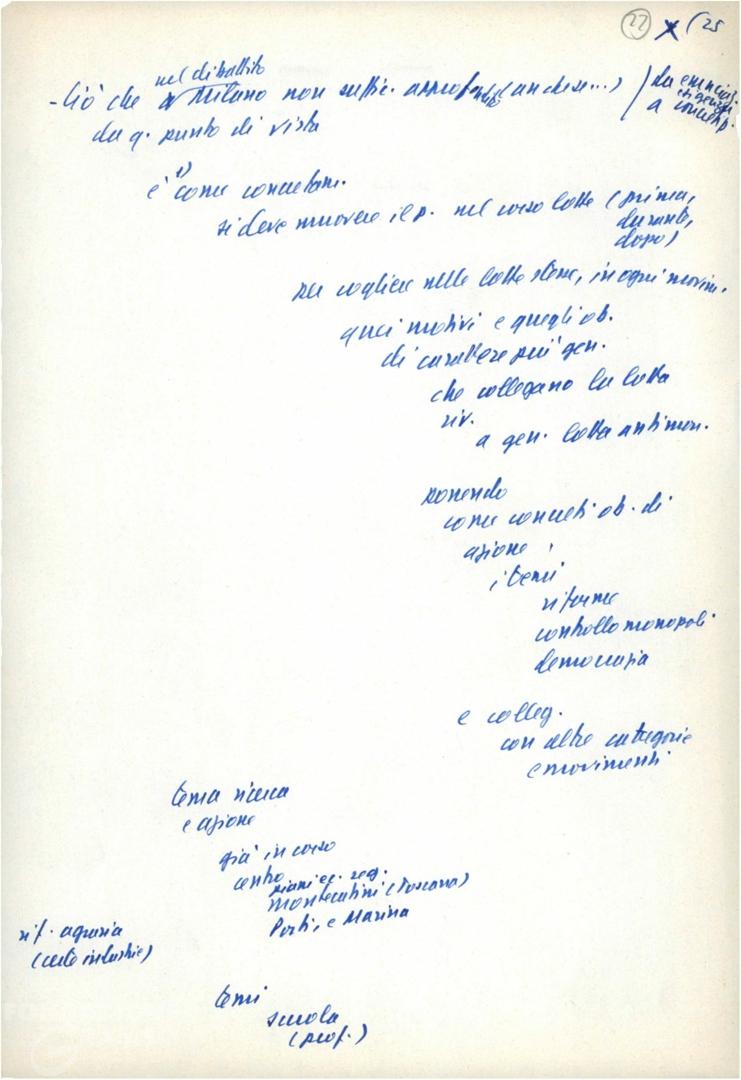 22 x (25
nel dibattito
- Ciò che a Milano non suffic. approfondito (anche se...) / da enunciaz.
esigenza
a concretizz.
da q. punto di vista
è 1) come concretam.
si deve muovere il p. nel corso lotte (prima,
durante,
dopo)
per cogliere nelle lotte stesse, in ogni movim.
quei motivi e quegli ob.
di carattere più gen.
che collegano la lotta
riv.
a gen. lotta antimon.
ponendo
come concreti ob. di
azione
i temi
riforme
controllo monopoli
democrazia
e colleg.
con altre categorie
e movimenti
tema ricerca
e azione
già in corso
centro
piani ec. reg.
Montecatini (Toscana)
Porti, e Marina
rif. agraria
(certe industrie)
temi
scuola
(prof.)